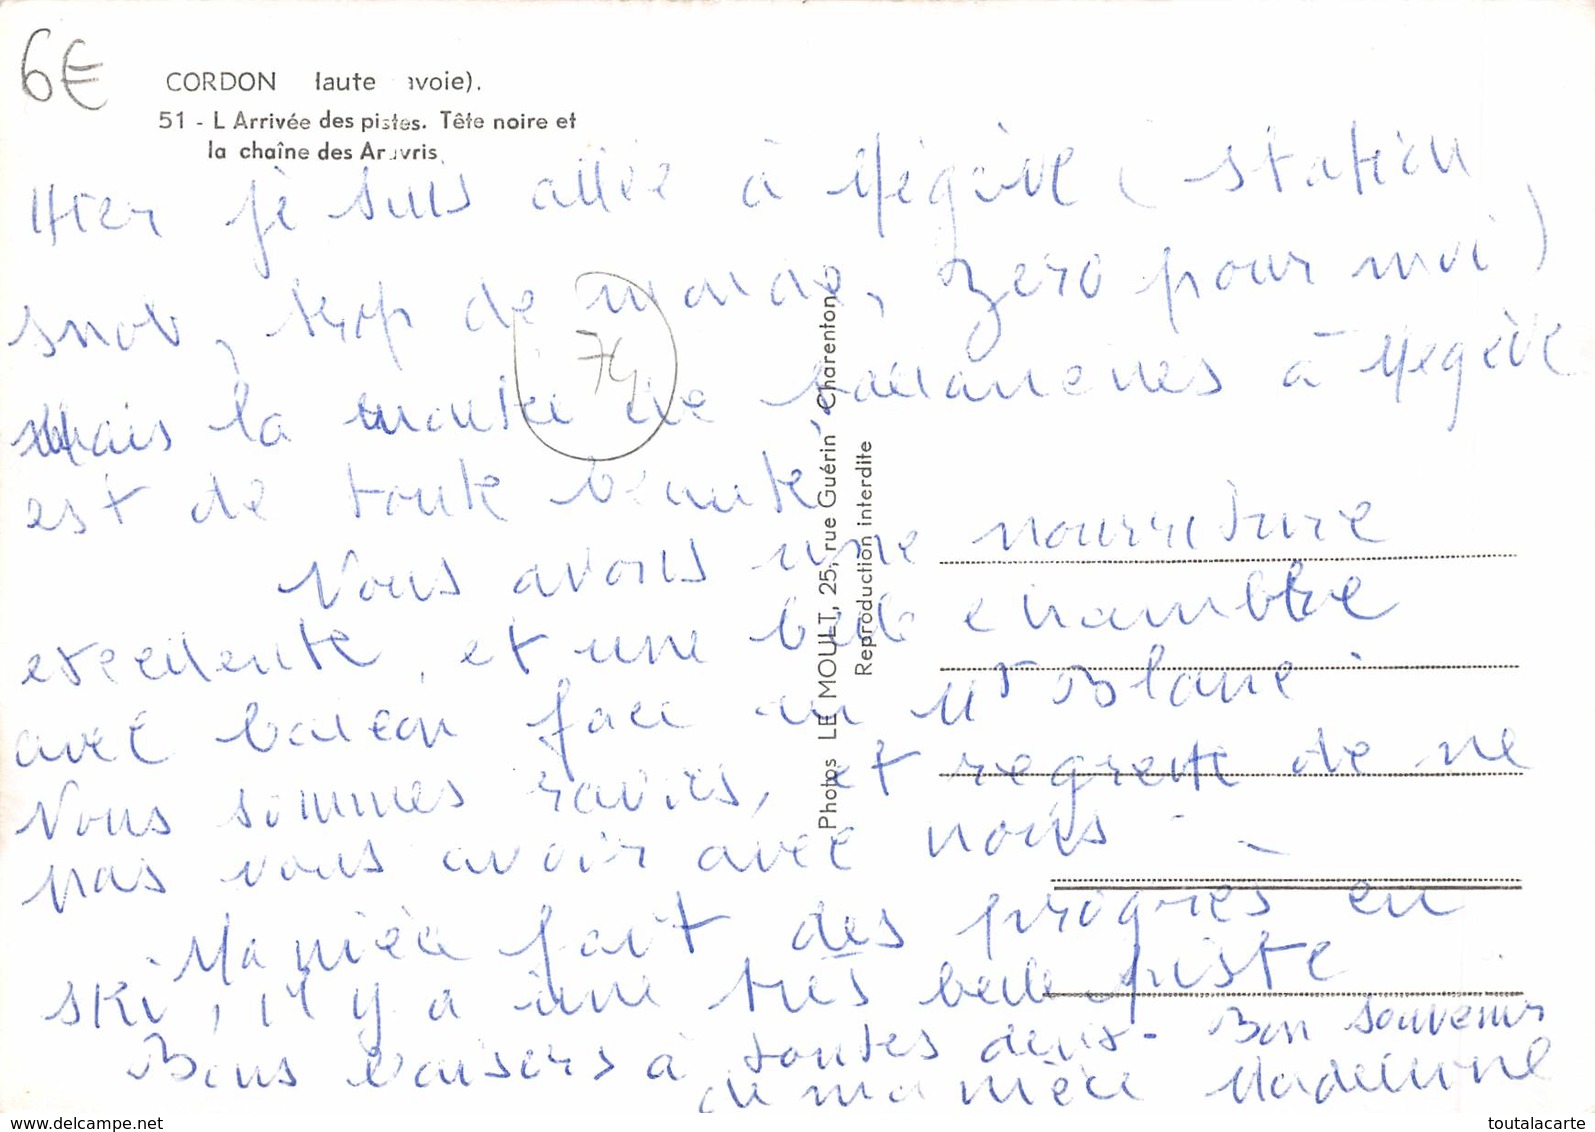 6€
CORDON laute avoie).
51 - L Arrivée des pistes. Tête noire et
la chaîne des Aravis
Hier je suis allée à Megève (station
snob, trop de monde, zéro pour moi)
Mais la montée de à Megève
est de toute beauté
Nous avons une nourriture
excellente, et une belle chambre
avec balcon face au Mt Blanc.
Nous sommes ravies, et regrette de ne
pas vous avoir avec nous.
Ma nièce fait des progrès en
ski, il y a une très belle piste
Bons baisers à toutes deux - Bon souvenir
de ma nièce Madeleine
74
Photos LE MOULT, 25, rue Guérin Charenton
Reproduction interdite
www.delcampe.net
toutalacarte